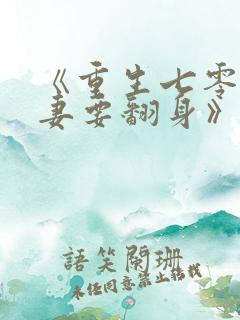 《重生七零
妻要翻身》
語笑闌珊
未經同意禁止轉載